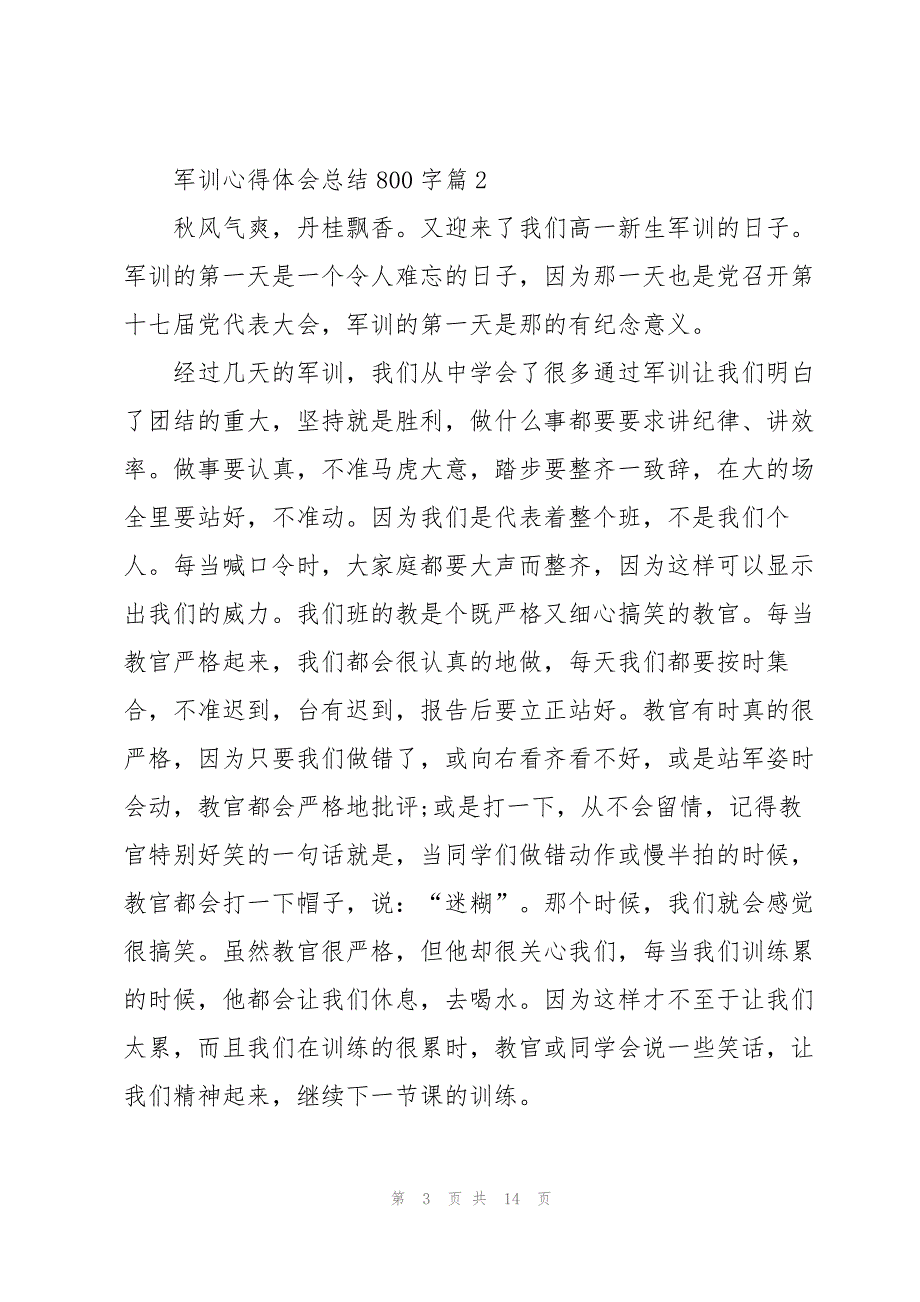 军训心得体会总结 800 字篇 2
秋风气爽，丹桂飘香。又迎来了我们高一新生军训的日子。
军训的第一天是一个令人难忘的日子，因为那一天也是党召开第
十七届党代表大会，军训的第一天是那的有纪念意义。
经过几天的军训，我们从中学会了很多通过军训让我们明白
了团结的重大，坚持就是胜利，做什么事都要要求讲纪律、讲效
率。做事要认真，不准马虎大意，踏步要整齐一致辞，在大的场
全里要站好，不准动。因为我们是代表着整个班，不是我们个
人。每当喊口令时，大家庭都要大声而整齐，因为这样可以显示
出我们的威力。我们班的教是个既严格又细心搞笑的教官。每当
教官严格起来，我们都会很认真的地做，每天我们都要按时集
合，不准迟到，台有迟到，报告后要立正站好。教官有时真的很
严格，因为只要我们做错了，或向右看齐看不好，或是站军姿时
会动，教官都会严格地批评;或是打一下，从不会留情，记得教
官特别好笑的一句话就是，当同学们做错动作或慢半拍的时候，
教官都会打一下帽子，说：“迷糊”。那个时候，我们就会感觉
很搞笑。虽然教官很严格，但他却很关心我们，每当我们训练累
的时候，他都会让我们休息，去喝水。因为这样才不至于让我们
太累，而且我们在训练的很累时，教官或同学会说一些笑话，让
我们精神起来，继续下一节课的训练。
第 3 页 共 14 页